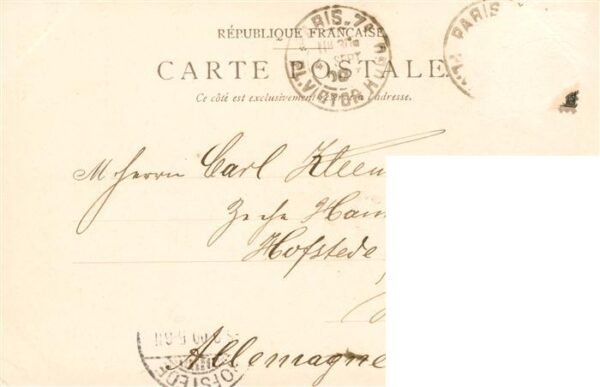 RÉPUBLIQUE FRANÇAISE
CARTE POSTALE
Ce côté est exclusivement réservé à l'adresse.
PARIS
PL. VICTOR H
PARIS
PL. V
M Herrn Carl Kleem
Zeche Han
Hofstede
Allemagne
HOFSTEDE